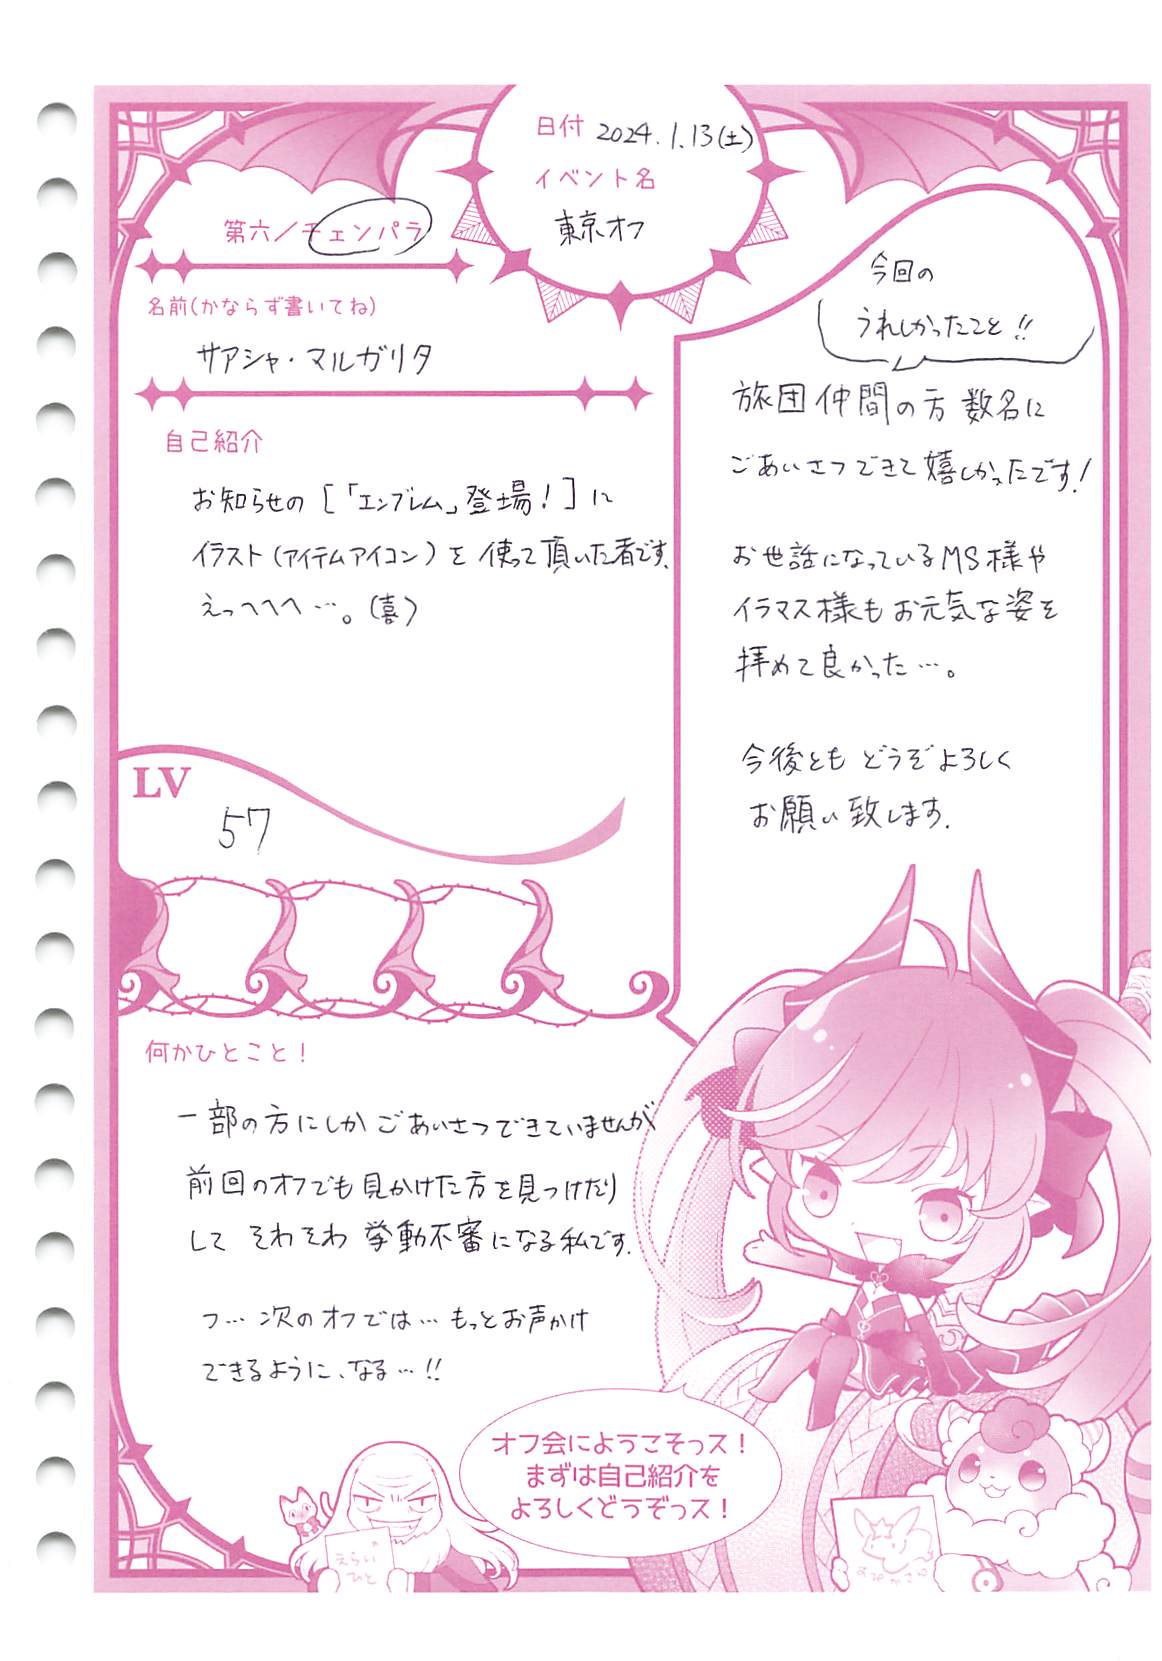 日付 2024.1.13(土)
イベント名
東京オフ
第六／チェンパラ
名前(かならず書いてね)
サアシャ・マルガリタ
自己紹介
お知らせの［「エンブレム」登場！］に
イラスト（アイテムアイコン）を使って頂いた者です.
えっへへへ…。（喜）
LV
57
今回の
うれしかったこと!!
旅団仲間の方数名に
ごあいさつできて嬉しかったです!
お世話になっているMS様や
イラマス様もお元気な姿を
拝めて良かった…。
今後とも どうぞよろしく
お願い致します.
何かひとこと！
一部の方にしかごあいさつできていませんが
前回のオフでも見かけた方を見つけたり
して そわそわ 挙動不審になる私です.
フ… 次のオフでは… もっとお声かけ
できるように、なる…!!
オフ会にようこそっス！
まずは自己紹介を
よろしくどうぞっス！
えらい
ひと